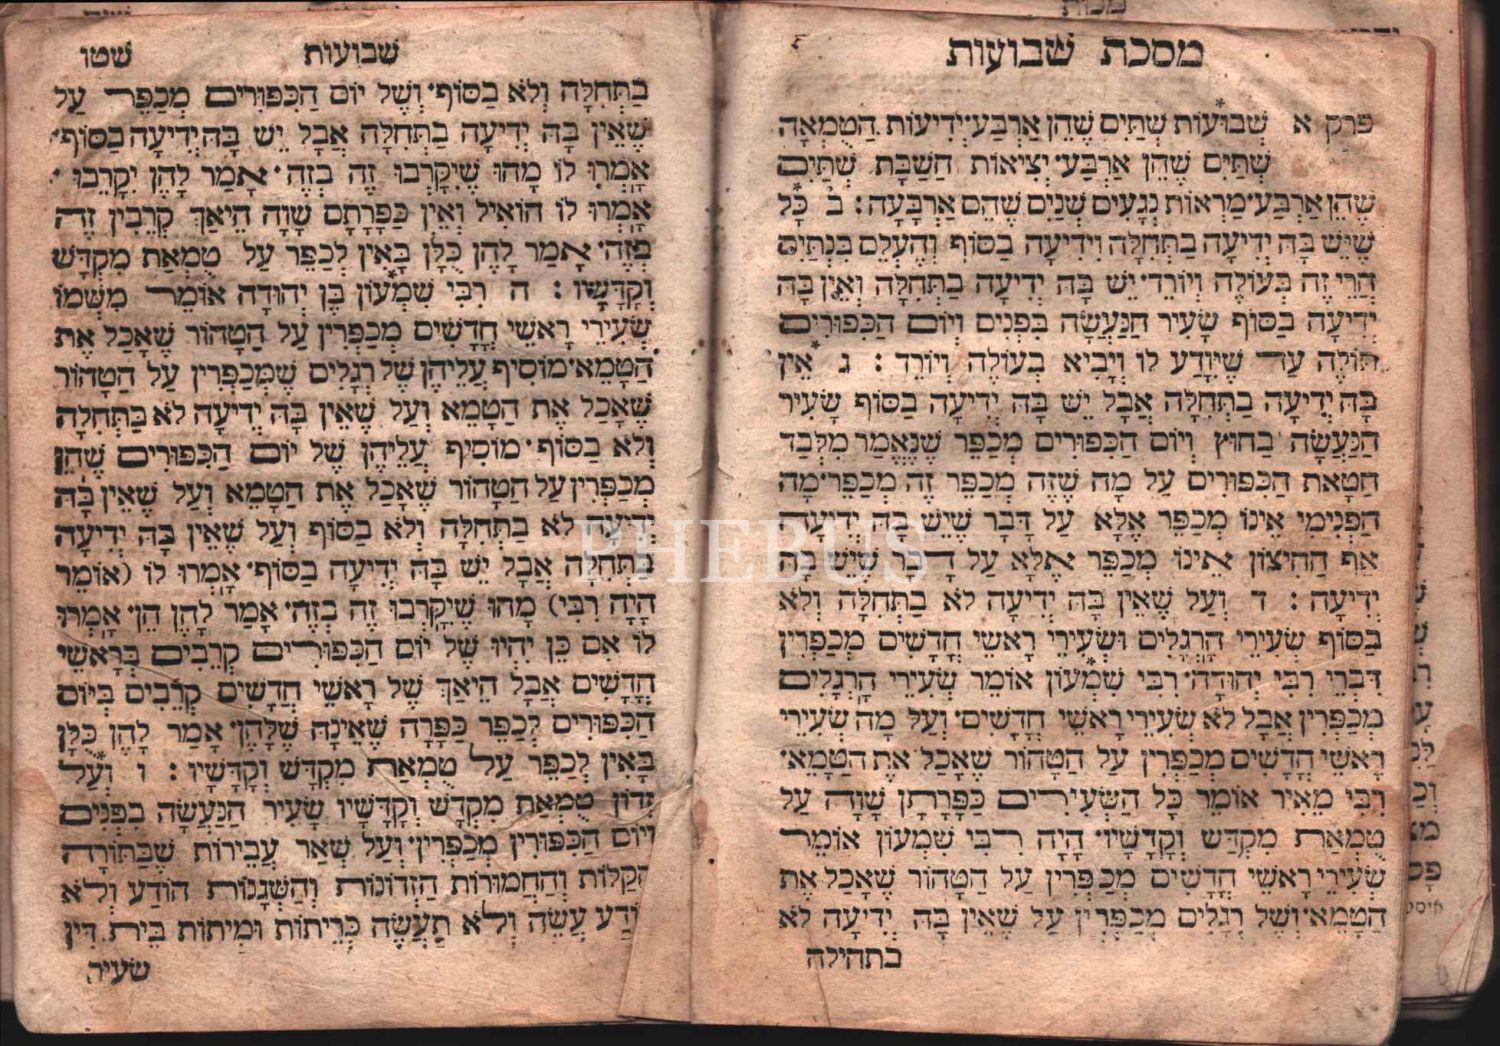 מסכת שבועות
פרק א שְׁבוּעוֹת שְׁתַּיִם שֶׁהֵן אַרְבַּע׳ יְדִיעוֹת הַטֻמְאָה
שְׁתַּיִם שֶׁהֵן אַרְבַּע׳ יְצִיאוֹת הַשַּׁבָּת שְׁתַּיִם
שֶׁהֵן אַרְבַּע׳ מַרְאוֹת נְגָעִים שְׁנַיִם שֶׁהֵם אַרְבָּעָה: ב כָּל
שֶׁיֵּשׁ בָּהּ יְדִיעָה בַתְּחִלָּה וִידִיעָה בַסּוֹף וְהֶעְלֵם בִּנְתַיִם
הֲרֵי זֶה בְּעוֹלֶה וְיוֹרֵד׳ יֵשׁ בָּהּ יְדִיעָה בַתְּחִלָּה וְאֵין בָּהּ
יְדִיעָה בַסּוֹף שָׂעִיר הַנַּעֲשֶׂה בִּפְנִים וְיוֹם הַכִּפּוּרִים
תּוֹלֶה עַד שֶׁיִּוָּדַע לוֹ וְיָבִיא בְּעוֹלֶה וְיוֹרֵד: ג אֵין
בָּהּ יְדִיעָה בַתְּחִלָּה אֲבָל יֵשׁ בָּהּ יְדִיעָה בַסּוֹף שָׂעִיר
הַנַּעֲשֶׂה בַחוּץ וְיוֹם הַכִּפּוּרִים מְכַפֵּר שֶׁנֶּאֱמַר מִלְּבַד
חַטָּאת הַכִּפּוּרִים עַל מָה שֶׁזֶּה מְכַפֵּר זֶה מְכַפֵּר׳ מָה
הַפְּנִימִי אֵינוֹ מְכַפֵּר אֶלָּא עַל דָּבָר שֶׁיֵּשׁ בָּהּ יְדִיעָה
אַף הַחִיצוֹן אֵינוֹ מְכַפֵּר אֶלָּא עַל דָּבָר שֶׁיֵּשׁ בָּהּ
יְדִיעָה: ד וְעַל שֶׁאֵין בָּהּ יְדִיעָה לֹא בַתְּחִלָּה וְלֹא
בַסּוֹף שְׂעִירֵי הָרְגָלִים וּשְׂעִירֵי רָאשֵׁי חֳדָשִׁים מְכַפְּרִין
דִּבְרֵי רַבִּי יְהוּדָה׳ רַבִּי שִׁמְעוֹן אוֹמֵר שְׂעִירֵי הָרְגָלִים
מְכַפְּרִין אֲבָל לֹא שְׂעִירֵי רָאשֵׁי חֳדָשִׁים׳ וְעַל מָה שְׂעִירֵי
רָאשֵׁי חֳדָשִׁים מְכַפְּרִין עַל הַטָּהוֹר שֶׁאָכַל אֶת הַטָּמֵא׳
רַבִּי מֵאִיר אוֹמֵר כָּל הַשְּׂעִירִים כַּפָּרָתָן שָׁוָה עַל
טֻמְאַת מִקְדָּשׁ וְקָדָשָׁיו׳ הָיָה רַבִּי שִׁמְעוֹן אוֹמֵר
שְׂעִירֵי רָאשֵׁי חֳדָשִׁים מְכַפְּרִין עַל הַטָּהוֹר שֶׁאָכַל אֶת
הַטָּמֵא׳ וְשֶׁל רְגָלִים מְכַפְּרִין עַל שֶׁאֵין בָּהּ יְדִיעָה לֹא
בתהילה
שבועות שטו
בַתְּחִלָּה וְלֹא בַסּוֹף׳ וְשֶׁל יוֹם הַכִּפּוּרִים מְכַפֵּר עַל
שֶׁאֵין בָּהּ יְדִיעָה בַתְּחִלָּה אֲבָל יֵשׁ בָּהּ יְדִיעָה בַסּוֹף׳
אָמְרוּ לוֹ מָהוּ שֶׁיִּקָרְבוּ זֶה בְזֶה׳ אָמַר לָהֶן יִקָרֵבוּ׳
אָמְרוּ לוֹ הוֹאִיל וְאֵין כַּפָּרָתָם שָׁוָה הֵיאַךְ קְרֵבִין זֶה
בְּזֶה׳ אָמַר לָהֶן כֻּלָּן בָּאִין לְכַפֵּר עַל טֻמְאַת מִקְדָּשׁ
וְקָדָשָׁיו: ה רַבִּי שִׁמְעוֹן בֶּן יְהוּדָה אוֹמֵר מִשְּׁמוֹ
שְׂעִירֵי רָאשֵׁי חֳדָשִׁים מְכַפְּרִין עַל הַטָּהוֹר שֶׁאָכַל אֶת
הַטָּמֵא׳ מוֹסִיף עֲלֵיהֶן שֶׁל רְגָלִים שֶׁמְּכַפְּרִין עַל הַטָּהוֹר
שֶׁאָכַל אֶת הַטָּמֵא וְעַל שֶׁאֵין בָּהּ יְדִיעָה לֹא בַתְּחִלָּה
וְלֹא בַסּוֹף׳ מוֹסִיף עֲלֵיהֶן שֶׁל יוֹם הַכִּפּוּרִים שֶׁהֵן
מְכַפְּרִין עַל הַטָּהוֹר שֶׁאָכַל אֶת הַטָּמֵא וְעַל שֶׁאֵין בָּהּ
יְדִיעָה לֹא בַתְּחִלָּה וְלֹא בַסּוֹף וְעַל שֶׁאֵין בָּהּ יְדִיעָה
בַתְּחִלָּה אֲבָל יֵשׁ בָּהּ יְדִיעָה בַסּוֹף׳ אָמְרוּ לוֹ (אוֹמֵר
הָיָה רַבִּי) מָהוּ שֶׁיִּקָרְבוּ זֶה בְזֶה׳ אָמַר לָהֶן הֵן׳ אָמְרוּ
לוֹ אִם כֵּן יִהְיוּ שֶׁל יוֹם הַכִּפּוּרִים קְרֵבִים בְּרָאשֵׁי
חֳדָשִׁים אֲבָל הֵיאַךְ שֶׁל רָאשֵׁי חֳדָשִׁים קְרֵבִים בְּיוֹם
הַכִּפּוּרִים לְכַפֵּר כַּפָּרָה שֶׁאֵינָהּ שֶׁלָּהֶן׳ אָמַר לָהֶן כֻּלָּן
בָּאִין לְכַפֵּר עַל טֻמְאַת מִקְדָּשׁ וְקָדָשָׁיו: ו וְעַל
זְדוֹן טֻמְאַת מִקְדָּשׁ וְקָדָשָׁיו שָׂעִיר הַנַּעֲשֶׂה בִּפְנִים
וְיוֹם הַכִּפּוּרִין מְכַפְּרִין׳ וְעַל שְׁאַר עֲבֵירוֹת שֶׁבַּתּוֹרָה
הַקַּלּוֹת וְהַחֲמוּרוֹת הַזְּדוֹנוֹת וְהַשְּׁגָגוֹת הוֹדַע וְלֹא
הוֹדַע עֲשֵׂה וְלֹא תַעֲשֶׂה כְּרֵיתוֹת וּמִיתוֹת בֵּית דִּין
שעיר
PHEBUS